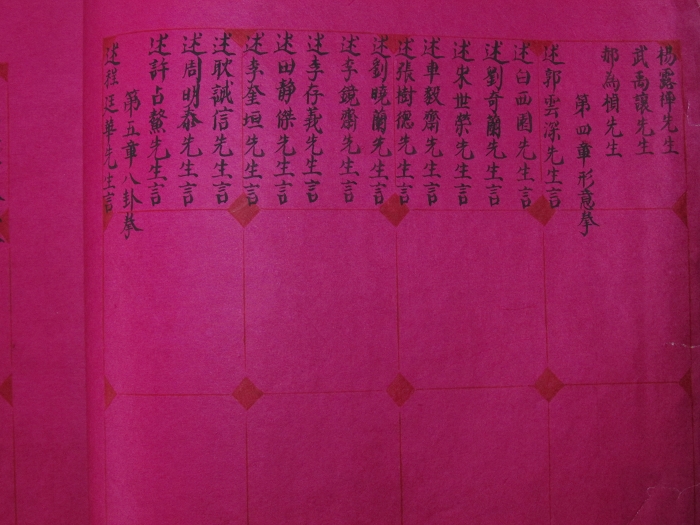 楊露陣先生
武禹讓先生
郝為楨先生
第四章形意拳
述郭雲深先生言
述白西園先生言
述劉奇蘭先生言
述宋世榮先生言
述車毅齋先生言
述張樹德先生言
述劉曉蘭先生言
述李鏡齋先生言
述李存義先生言
述田静傑先生言
述李奎垣先生言
述耿誠信先生言
述周明泰先生言
述許占鰲先生言
第五章八卦拳
述程廷華先生言